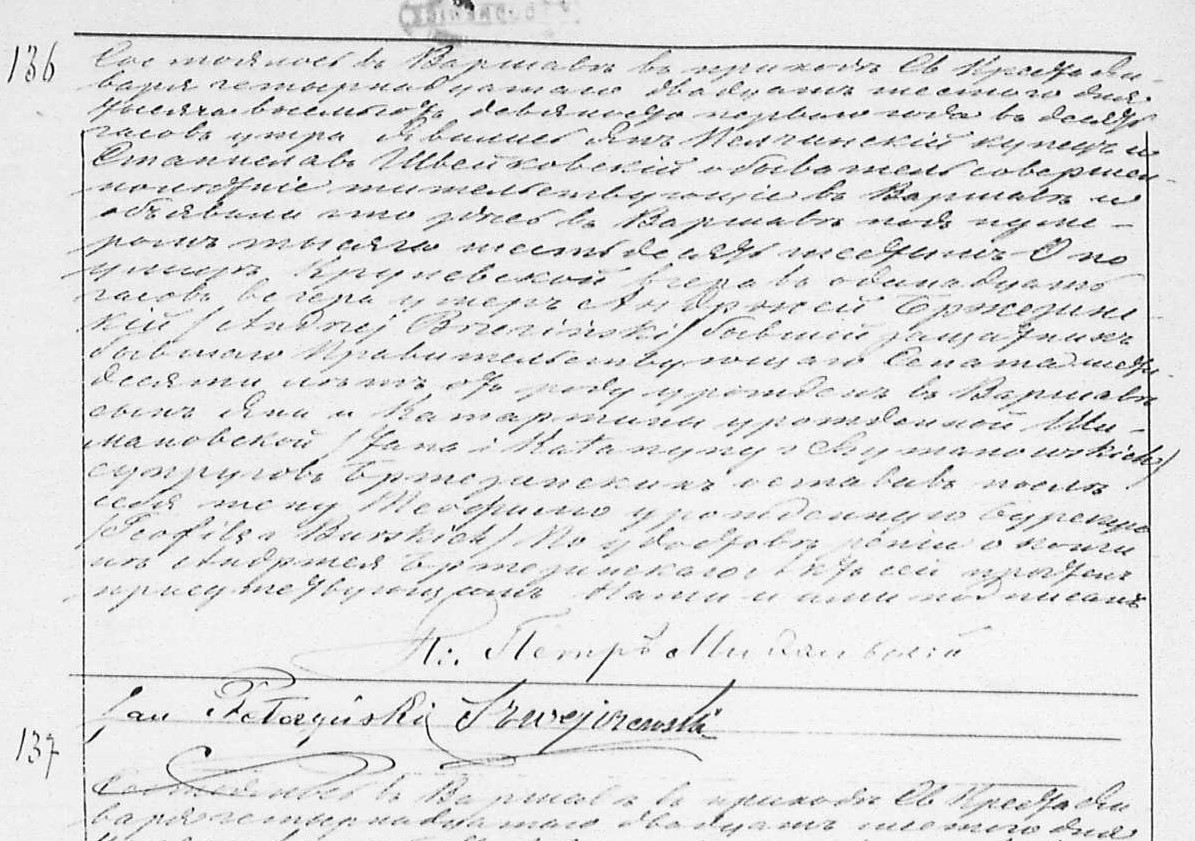 136
Состоялось въ Варшавѣ въ приходѣ Св Креста Ян-
варя четырнадцатаго двадцать шестого дня
тысяча восемьсотъ девяносто перваго года въ десять
часовъ утра Явились Янъ купецъ и
Станиславъ Швейковскій обыватель совершен-
нолѣтніе жительствующіе въ Варшавѣ и
объявили что здѣсь въ Варшавѣ подъ нуме-
ромъ тысяча шестьдесятъ шестымъ О по
улицѣ Крулевской вчера въ одинадцать
часовъ вечера умеръ Андржей Бржезин-
скій /Andrzej Brzeziński/ бывшій
бывшаго Правительствующаго Сената шести-
десяти лѣтъ отъ роду урожденъ въ Варшавѣ
сынъ Яна и Катаржины урожденной Ши-
мановской /Jana i Katarzyny z Szymanowskich/
супруговъ Бржезинскихъ оставивъ послѣ
себя жену Теофилю урожденную Бурскую
/Teofilę z Burskich/ По удостовѣреніи о кончи-
нѣ Андржея Бржезинскаго актъ сей прочтенъ
присутствующимъ Нами и ими подписанъ
Петръ
Jan Szwejkowski
137
Состоялось въ Варшавѣ въ приходѣ Св Креста Ян
варя четырнадцатаго двадцать шестого дня